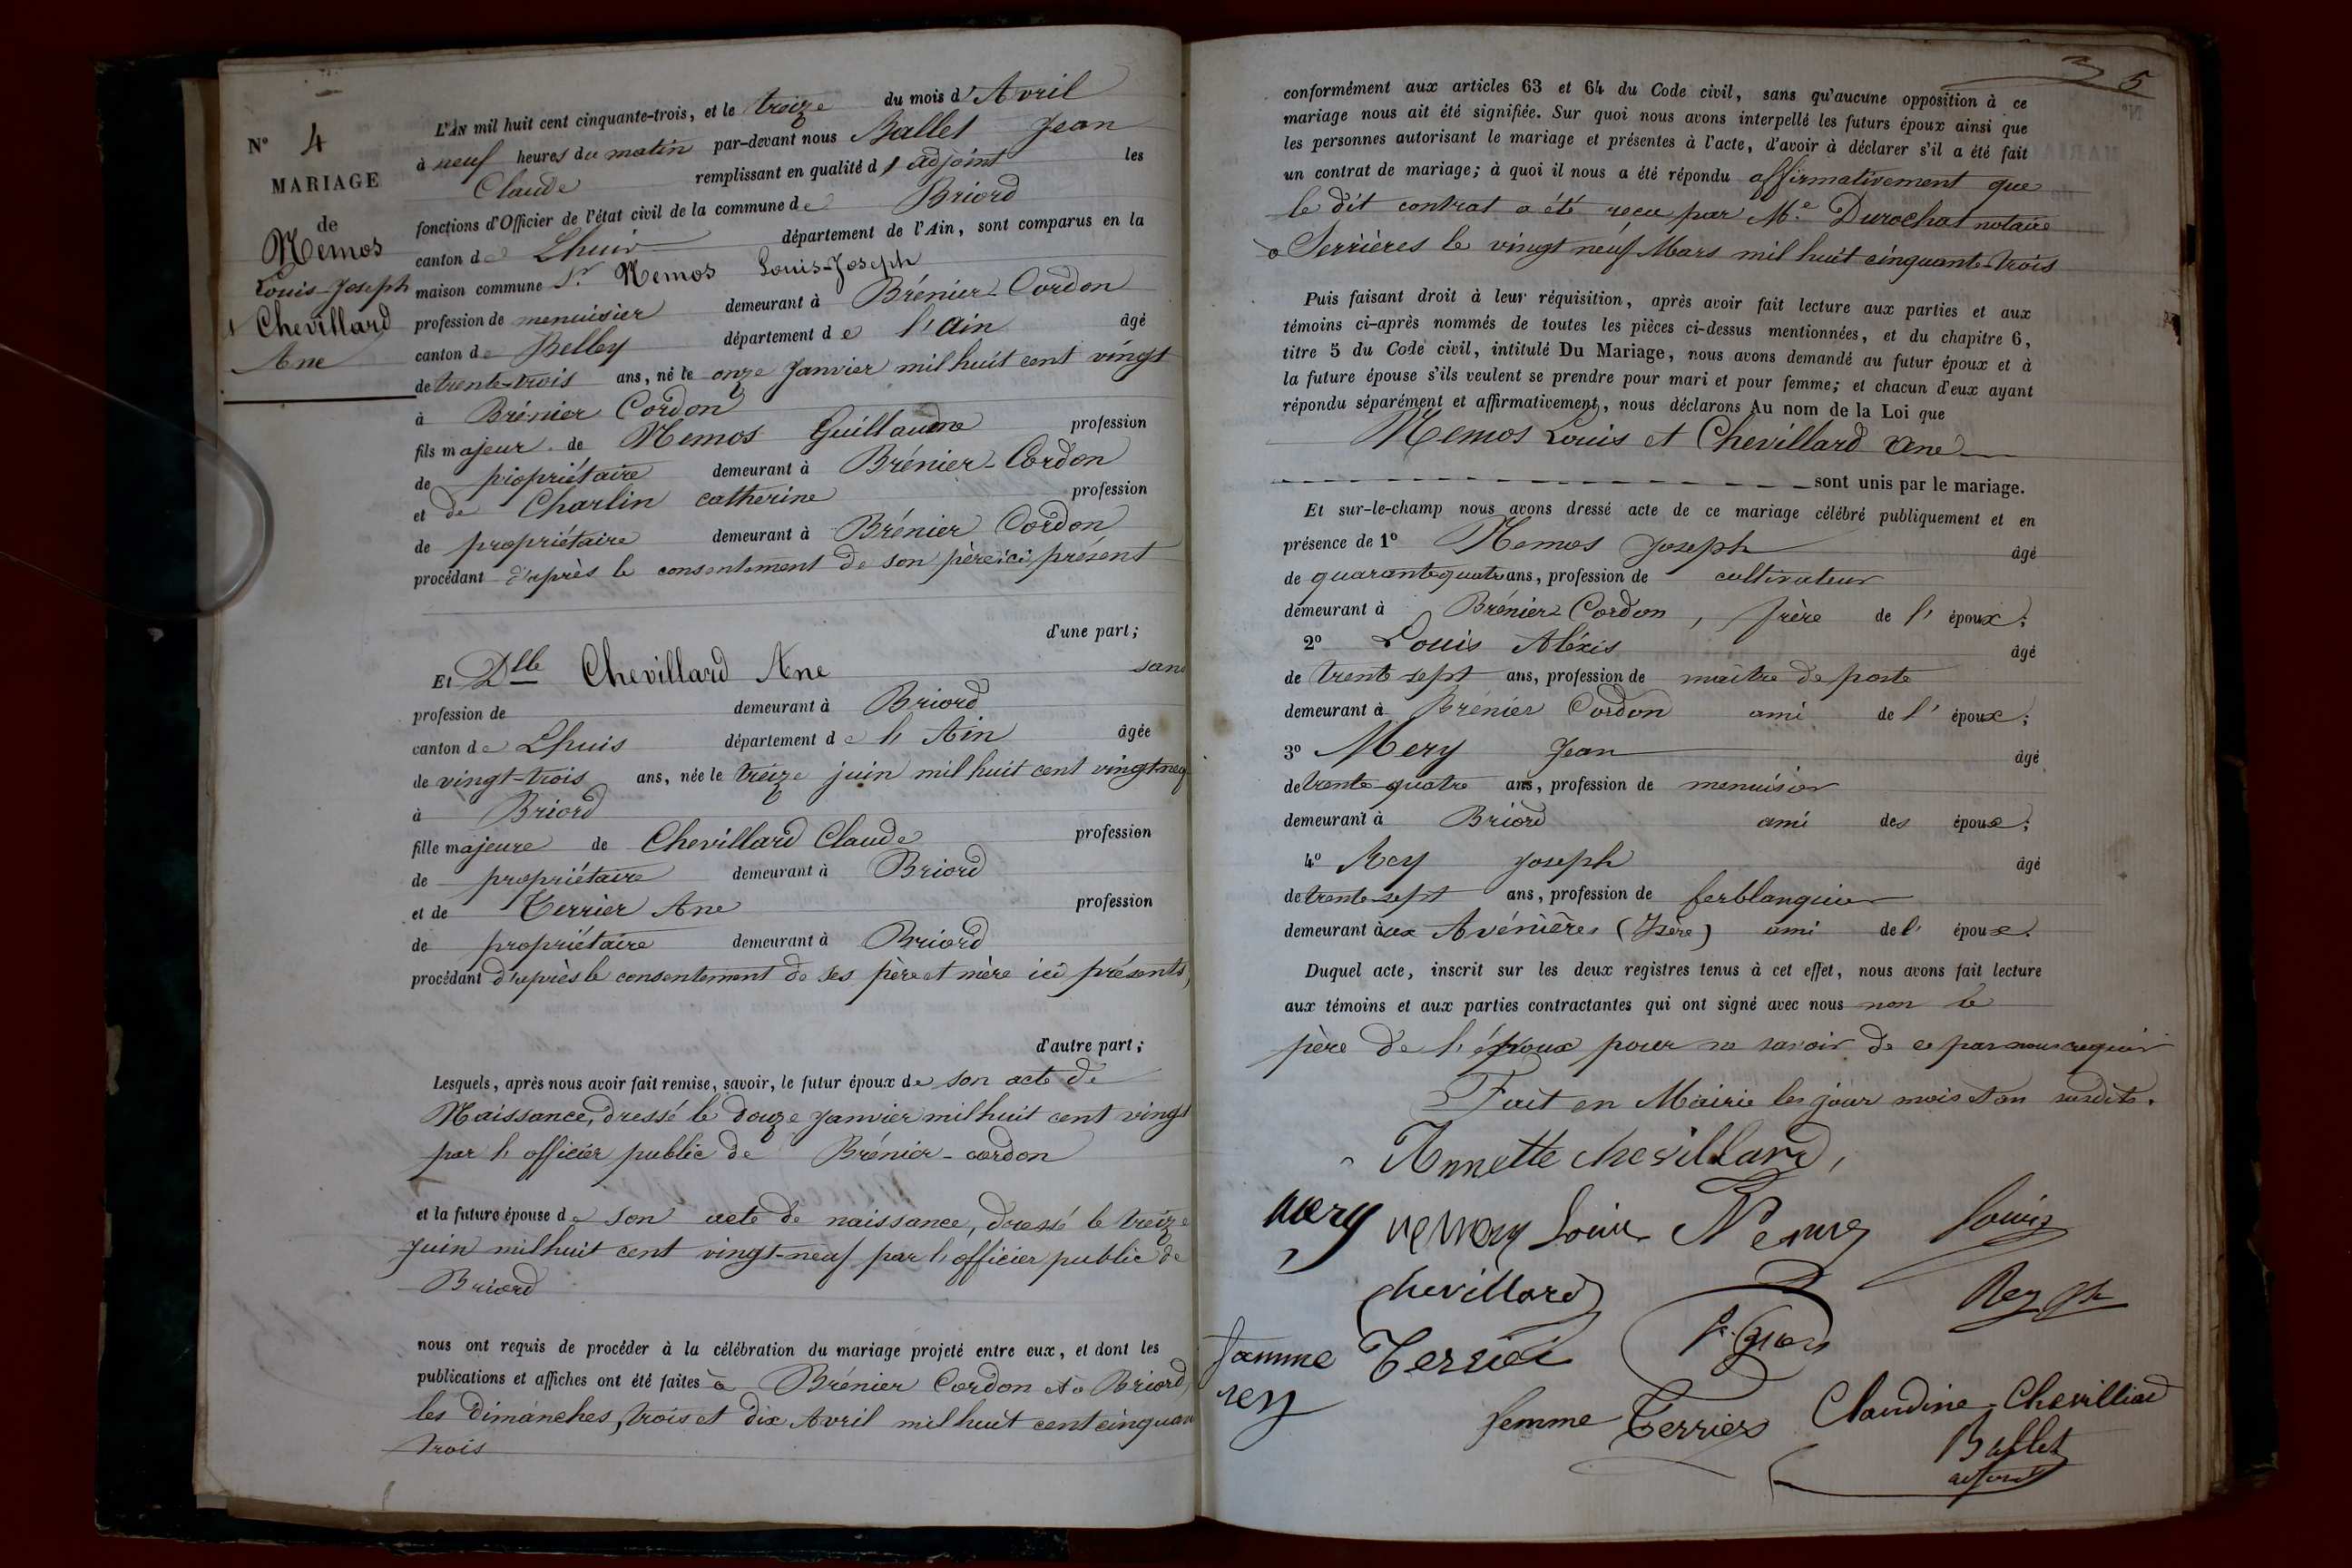 Nº 4
MARIAGE
de
Nemos
Louis-Joseph
&
Chevillard
Ane
L'AN mil huit cent cinquante-trois, et le treize du mois d'Avril
à neuf heures du matin par-devant nous Ballet Jean
Claude remplissant en qualité d'adjoint les
fonctions d'Officier de l'état civil de la commune de Briord
canton de Lhuis département de l'Ain, sont comparus en la
maison commune Sr Nemos Louis-Joseph
profession de menuisier demeurant à Brénier-Cordon
canton de Belley département de l'Ain âgé
de trente-trois ans, né le onze Janvier mil huit cent vingt
à Brénier Cordon
fils majeur de Nemos Guillaume profession
de propriétaire demeurant à Brénier-Cordon
et de Charlin catherine profession
de propriétaire demeurant à Brénier Cordon
procédant d'après le consentement de son père ici présent
d'une part;
Et Dlle Chevillard Ane sans
profession de demeurant à Briord
canton de Lhuis département de l'Ain âgée
de vingt-trois ans, née le treize juin mil huit cent vingt-neuf
à Briord
fille majeure de Chevillard Claude profession
de propriétaire demeurant à Briord
et de Terrier Ane profession
de propriétaire demeurant à Briord
procédant d'après le consentement de ses père et mère ici présents,
d'autre part;
Lesquels, après nous avoir fait remise, savoir, le futur époux de son acte de
Naissance, dressé le douze janvier mil huit cent vingt
par l'officier public de Brénier-cordon
et la future épouse de son acte de naissance, dressé le treize
Juin mil huit cent vingt-neuf par l'officier public de
Briord
nous ont requis de procéder à la célébration du mariage projeté entre eux, et dont les
publications et affiches ont été faites à Brénier Cordon et à Briord,
les Dimanches, trois et dix Avril mil huit cent cinquan
trois
5
conformément aux articles 63 et 64 du Code civil, sans qu'aucune opposition à ce
mariage nous ait été signifiée. Sur quoi nous avons interpellé les futurs époux ainsi que
les personnes autorisant le mariage et présentes à l'acte, d'avoir à déclarer s'il a été fait
un contrat de mariage; à quoi il nous a été répondu affirmativement que
le dit contrat a été reçu par Me Durochat notaire
à Serrières le vingt neuf Mars mil huit cinquante-trois
Puis faisant droit à leur réquisition, après avoir fait lecture aux parties et aux
témoins ci-après nommés de toutes les pièces ci-dessus mentionnées, et du chapitre 6,
titre 5 du Code civil, intitulé Du Mariage, nous avons demandé au futur époux et à
la future épouse s'ils veulent se prendre pour mari et pour femme; et chacun d'eux ayant
répondu séparément et affirmativement, nous déclarons Au nom de la Loi que
Nemos Louis et Chevillard Ane
sont unis par le mariage.
Et sur-le-champ nous avons dressé acte de ce mariage célébré publiquement et en
présence de 1º Nemos Joseph âgé
de quarante quatre ans, profession de cultivateur
demeurant à Brénier Cordon, frère de l'époux;
2º Louis Aléxis âgé
de trente sept ans, profession de maître de poste
demeurant à Brénier Cordon ami de l'époux;
3º Mery Jean âgé
de trente-quatre ans, profession de menuisier
demeurant à Briord ami des époux;
4º Rey Joseph âgé
de trente-sept ans, profession de ferblanquier
demeurant aux Avénières (Isère) ami de l'époux.
Duquel acte, inscrit sur les deux registres tenus à cet effet, nous avons fait lecture
aux témoins et aux parties contractantes qui ont signé avec nous non le
père de l'époux pour ne savoir de ce par nous requis
Fait en Mairie les jour mois et an susdits.
Annette chevillard,
mery nemoz Louis Nemoz Louis
chevillard Rey Jh
famme Terrier
rey
femme Terrier Claudine Chevilliard
Ballet
adjoint